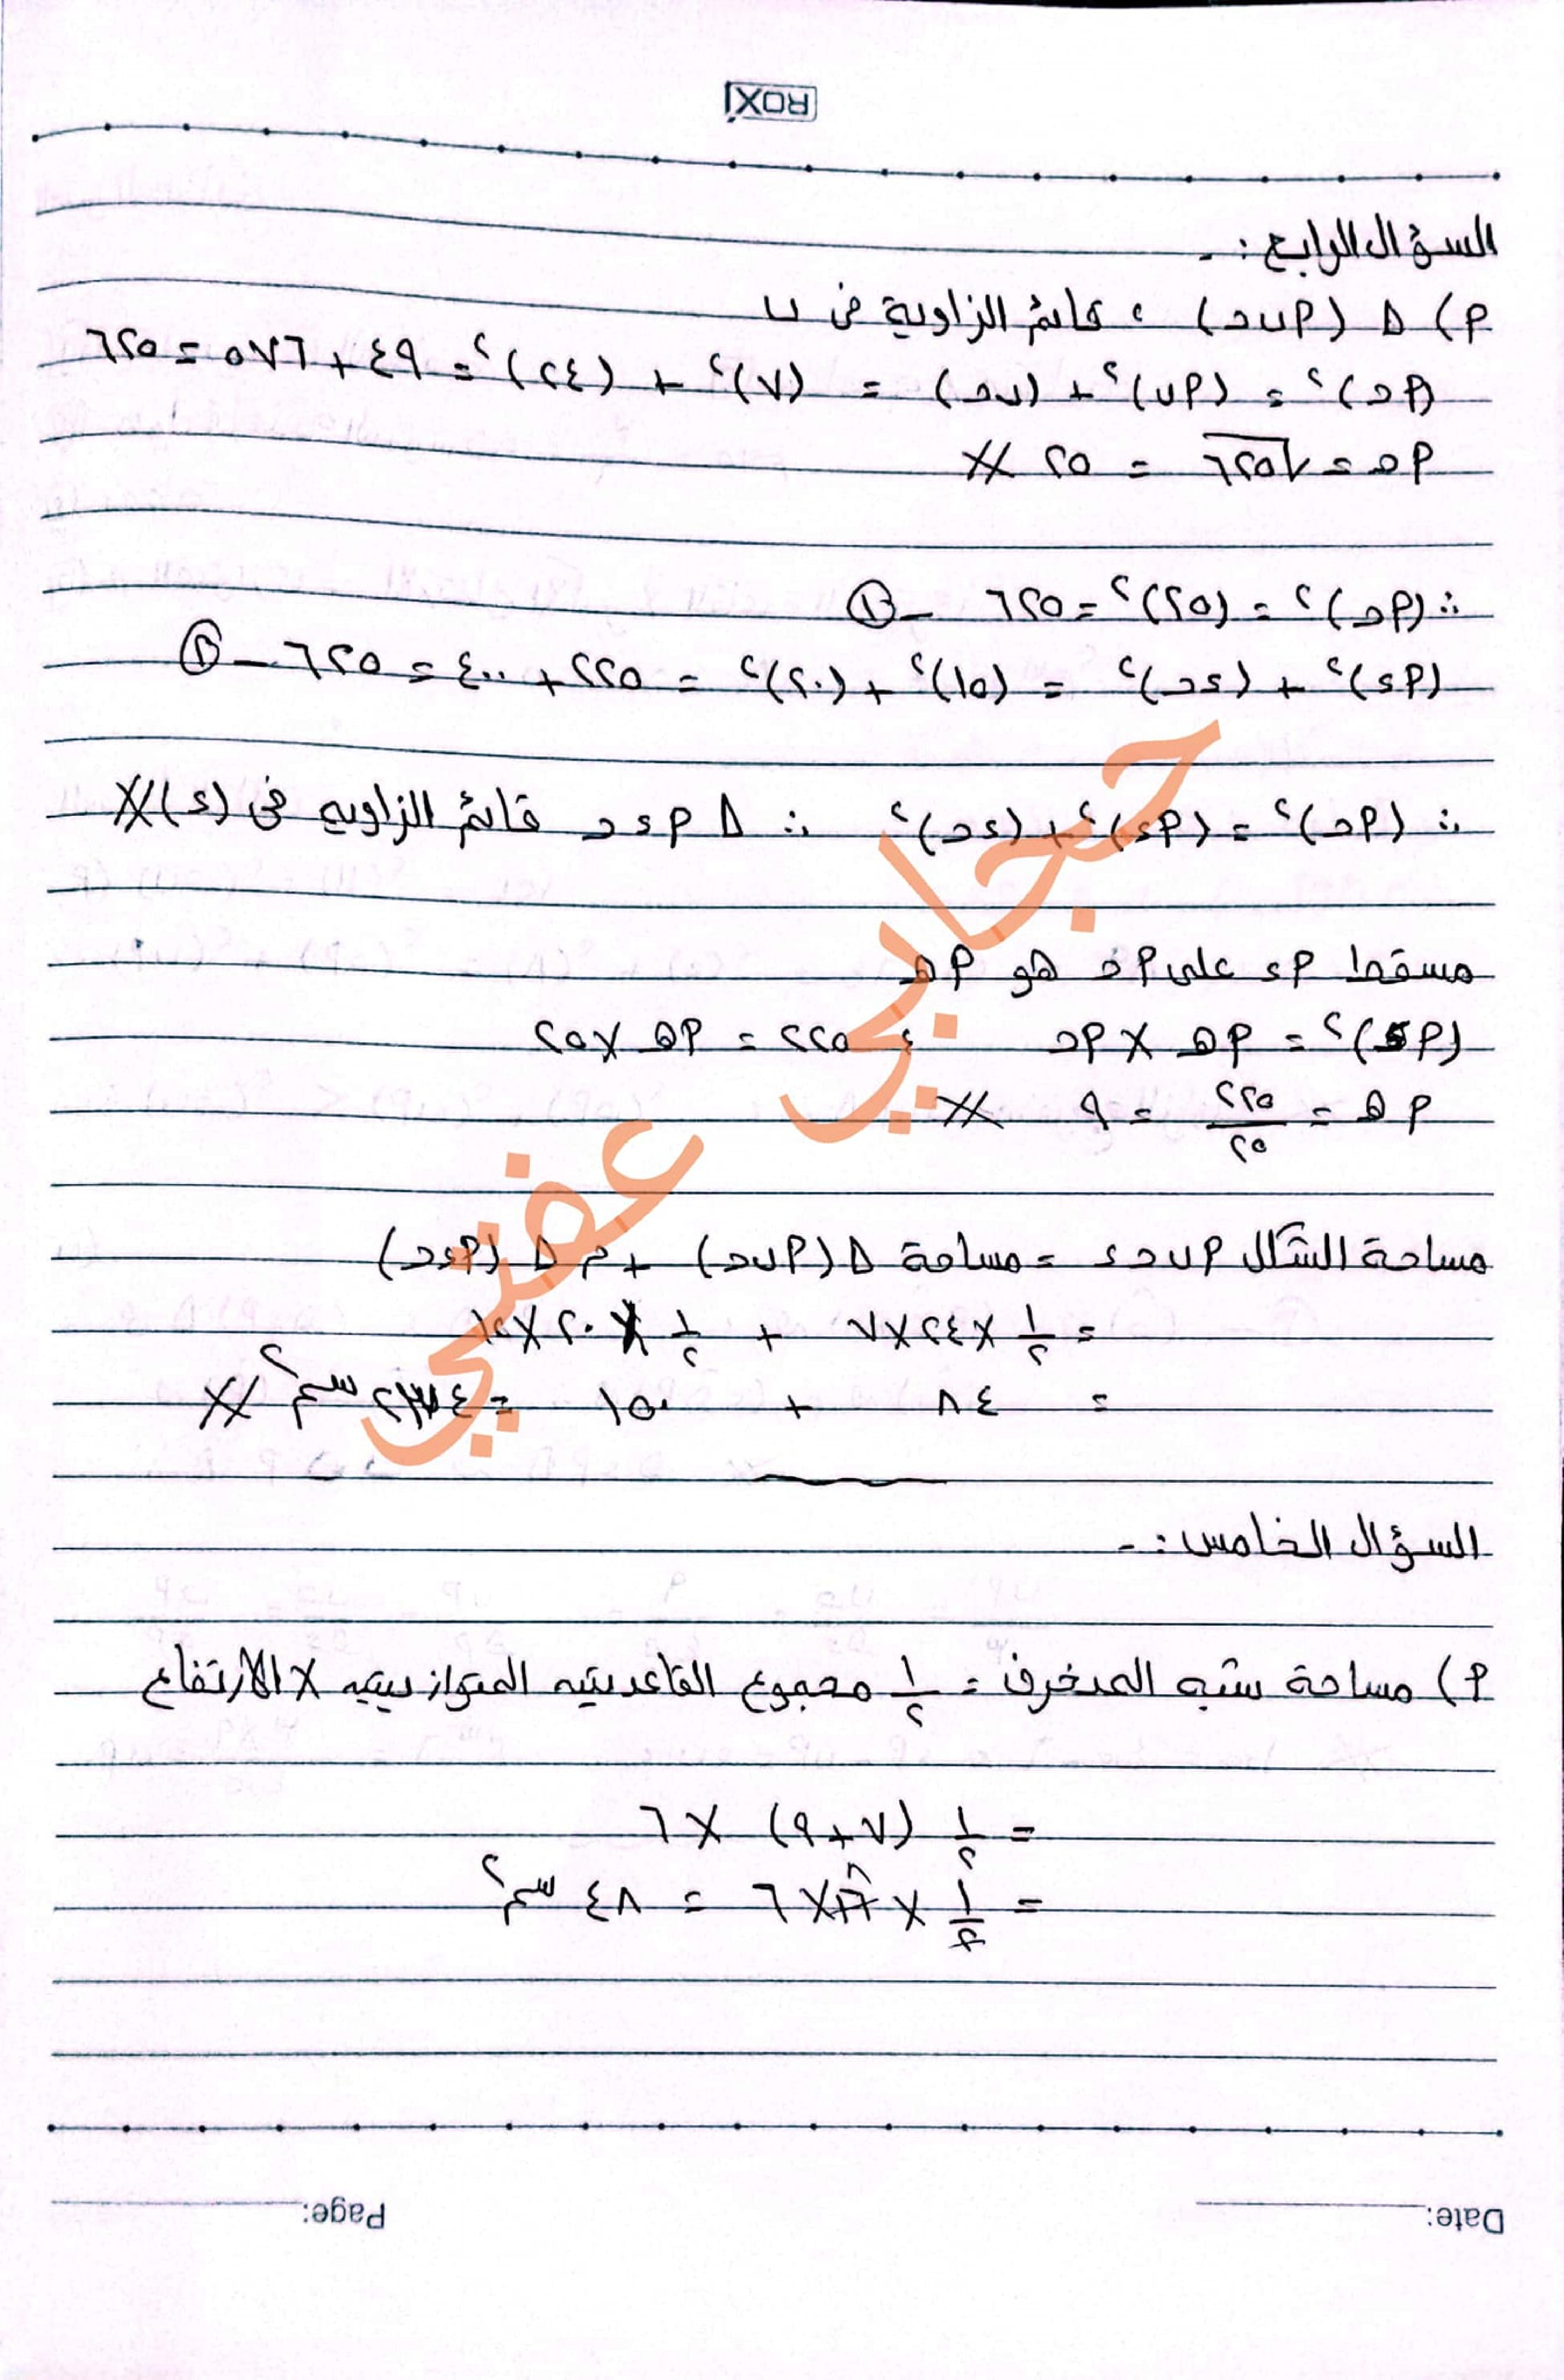 ROXI
السؤال الرابع :-
أ) Δ (أ ب حـ) ، قائم الزاوية فى ب
(أ حـ)² = (أ ب)² + (ب حـ) = (٧)² + (٢٤)² = ٤٩ + ٥٧٦ = ٦٢٥
أ حـ = √٦٢٥ = ٢٥ //
∴ (أ حـ)² = (٢٥)² = ٦٢٥ - ①
(أ ء)² + (ء حـ)² = (١٥)² + (٢٠)² = ٢٢٥ + ٤٠٠ = ٦٢٥ -
∴ (أ حـ)² = (أ ء)² + (ء حـ)² ∴ Δ أ ء حـ قائم الزاوية فى (ء) //
مسقط أ ء على أ حـ هو أ هـ
(أ ء)² = أ هـ × أ حـ ، ٢٢٥ = أ هـ × ٢٥
أ هـ = ٢٢٥/٢٥ = ٩ //
مساحة الشكل أ ب حـ ء = مساحة Δ (أ ب حـ) + م Δ (أ ء حـ)
= ١/٢ × ٢٤ × ٧ + ١/٢ × ٢٠ × ١٥
= ٨٤ + ١٥٠ = ٢٣٤ سم² //
السؤال الخامس :-
أ) مساحة شبه المنحرف = ١/٢ مجموع القاعدتين المتوازيتين × الارتفاع
= ١/٢ (٧ + ٩) × ٦
= ١/٢ × ١٦ ٨ × ٦ = ٤٨ سم²
حجابي عفتي
Date: Page: